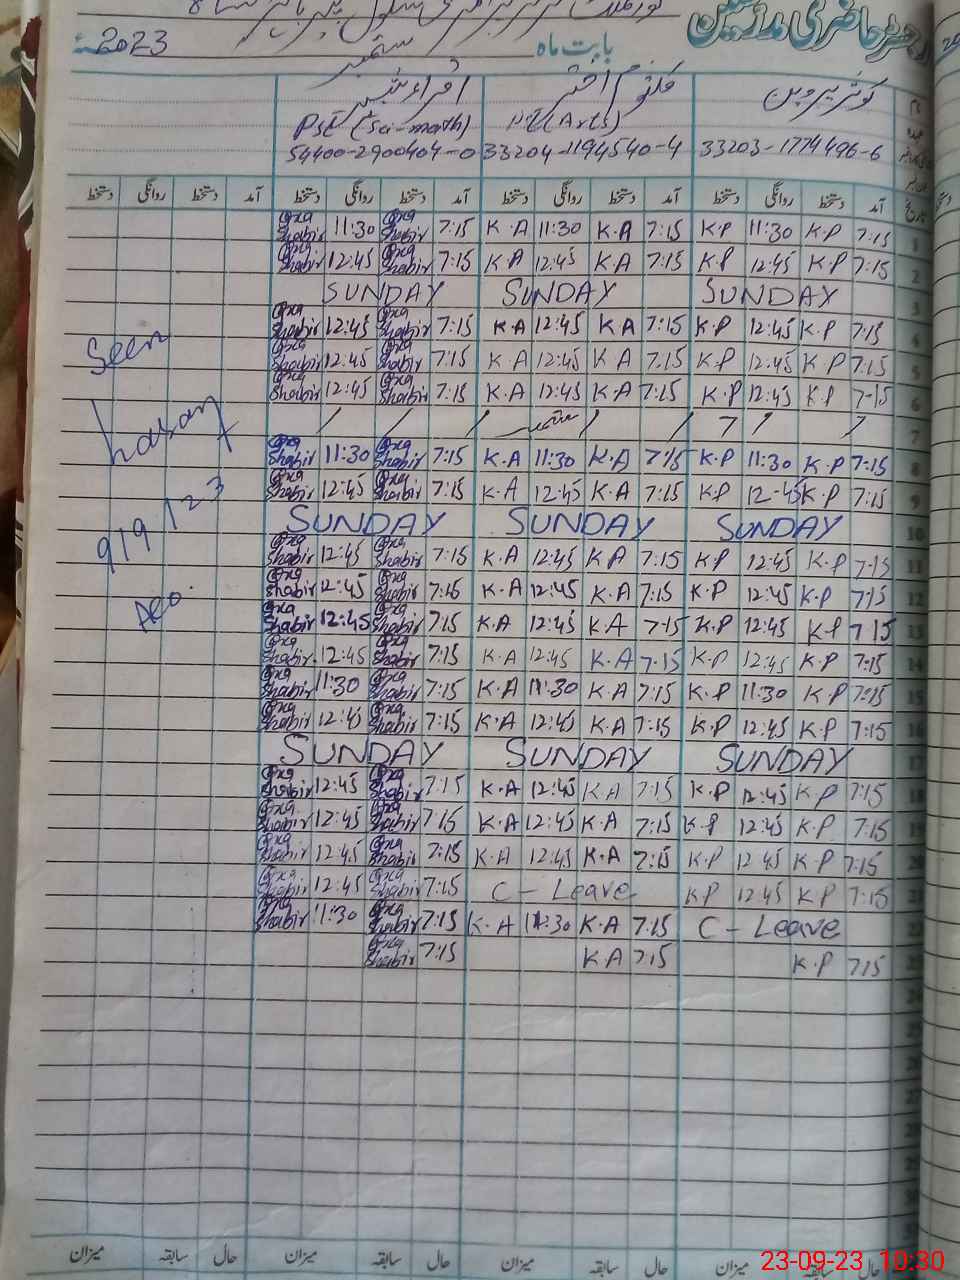 رجسٹر حاضری مدرسین
بابت ماہ ستمبر 2023
کوثر پروین کلثوم اختر اقراء شبیر
(Arts) PST (Sci-math)
33203-1774496-6 33204-1194540-4 54400-2900404-0
آمد دستخط روانگی دستخط آمد دستخط روانگی دستخط آمد دستخط روانگی دستخط آمد دستخط روانگی دستخط
1 7:15 K.P 11:30 K.P 7:15 K.A 11:30 K.A 7:15 Iqra Shabir 11:30 Iqra Shabir
2 7:15 K.P 12:45 K.P 7:15 K.A 12:45 K.A 7:15 Iqra Shabir 12:45 Iqra Shabir
3 SUNDAY SUNDAY SUNDAY
4 7:15 K.P 12:45 K.P 7:15 K.A 12:45 K.A 7:15 Iqra Shabir 12:45 Iqra Shabir
5 7:15 K.P 12:45 K.P 7:15 K.A 12:45 K.A 7:15 Iqra Shabir 12:45 Iqra Shabir
6 7:15 K.P 12:45 K.P 7:15 K.A 12:45 K.A 7:15 Iqra Shabir 12:45 Iqra Shabir
7
8 7:15 K.P 11:30 K.P 7:15 K.A 11:30 K.A 7:15 Iqra Shabir 11:30 Iqra Shabir
9 7:15 K.P 12:45 K.P 7:15 K.A 12:45 K.A 7:15 Iqra Shabir 12:45 Iqra Shabir
10 SUNDAY SUNDAY SUNDAY
11 7:15 K.P 12:45 K.P 7:15 K.A 12:45 K.A 7:15 Iqra Shabir 12:45 Iqra Shabir
12 7:15 K.P 12:45 K.P 7:15 K.A 12:45 K.A 7:15 Iqra Shabir 12:45 Iqra Shabir
13 7:15 K.P 12:45 K.P 7:15 K.A 12:45 K.A 7:15 Iqra Shabir 12:45 Iqra Shabir
14 7:15 K.P 12:45 K.P 7:15 K.A 12:45 K.A 7:15 Iqra Shabir 12:45 Iqra Shabir
15 7:15 K.P 11:30 K.P 7:15 K.A 11:30 K.A 7:15 Iqra Shabir 11:30 Iqra Shabir
16 7:15 K.P 12:45 K.P 7:15 K.A 12:45 K.A 7:15 Iqra Shabir 12:45 Iqra Shabir
17 SUNDAY SUNDAY SUNDAY
18 7:15 K.P 12:45 K.P 7:15 K.A 12:45 K.A 7:15 Iqra Shabir 12:45 Iqra Shabir
19 7:15 K.P 12:45 K.P 7:15 K.A 12:45 K.A 7:15 Iqra Shabir 12:45 Iqra Shabir
20 7:15 K.P 12:45 K.P 7:15 K.A 12:45 K.A 7:15 Iqra Shabir 12:45 Iqra Shabir
21 7:15 K.P 12:45 K.P C - Leave 7:15 Iqra Shabir 12:45 Iqra Shabir
22 C - Leave 7:15 K.A 11:30 K.A 7:15 Iqra Shabir 11:30 Iqra Shabir
23 7:15 K.P 7:15 K.A 7:15 Iqra Shabir
24
25
26
27
28
29
30
Seen
9/9/23
AEO.
میزان سابقہ حال میزان سابقہ حال میزان سابقہ حال میزان سابقہ
23-09-23 10:30